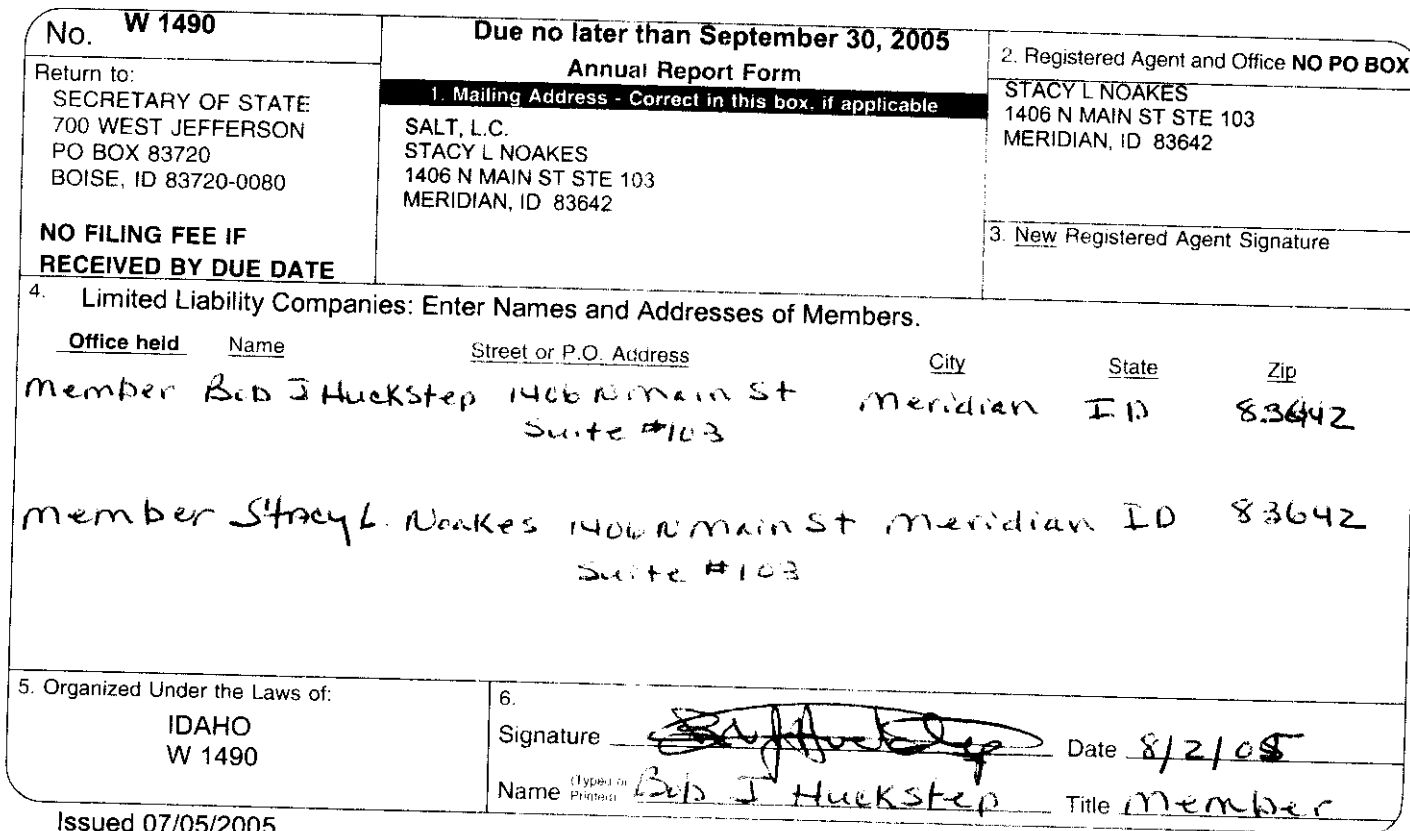 No. W 1490
Return to:
SECRETARY OF STATE
700 WEST JEFFERSON
PO BOX 83720
BOISE, ID 83720-0080
NO FILING FEE IF
RECEIVED BY DUE DATE
Due no later than September 30, 2005
Annual Report Form
1. Mailing Address - Correct in this box, if applicable
SALT, L.C.
STACY L NOAKES
1406 N MAIN ST STE 103
MERIDIAN, ID 83642
2. Registered Agent and Office NO PO BOX
STACY L NOAKES
1406 N MAIN ST STE 103
MERIDIAN, ID 83642
3. New Registered Agent Signature
4. Limited Liability Companies: Enter Names and Addresses of Members.
Office held Name Street or P.O. Address City State Zip
Member Bob J Huckstep 1406 N Main St Meridian ID 83642
Suite #103
Member Stacy L. Noakes 1406 N Main St Meridian ID 83642
Suite #103
5. Organized Under the Laws of:
IDAHO
W 1490
6.
Signature Bob J Huckstep Date 8/2/05
Name (Typed or Printed) Bob J Huckstep Title Member
Issued 07/05/2005